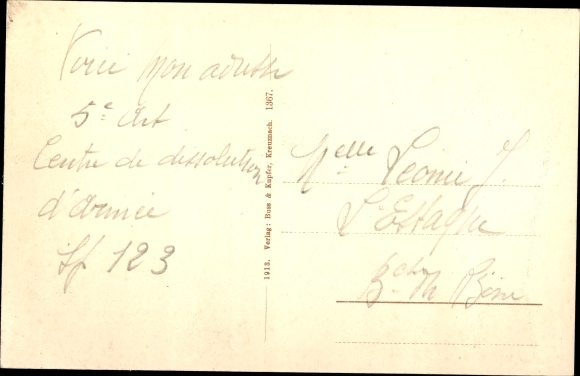 Voici mon adresse
5e Art
Centre de dissolution
d'Armée
Sp 123
1913. Verlag: Boss & Kupfer, Kreuznach. 1367.
Melle Léonie J.
L'Estaque
B. du Rh